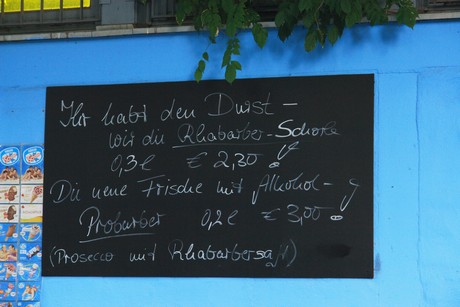 Ihr habt den Durst –
wir die Rhabarber-Schorle
0,3l € 2,30
Die neue Frische mit Alkohol –
Probarber 0,2l € 3,00
(Prosecco mit Rhabarbersaft)